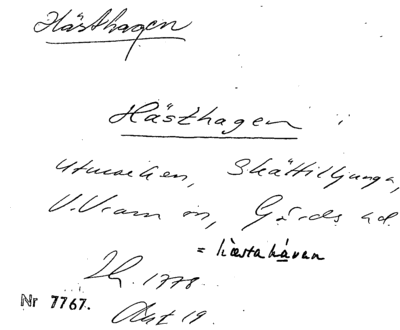 Hästhagen
Hästhagen i
utmarken, Skättiljunga,
V. Vram sn, Gärds hd.
= hæsta havan
Lh. 1778
Nr 7767.
Akt 19.